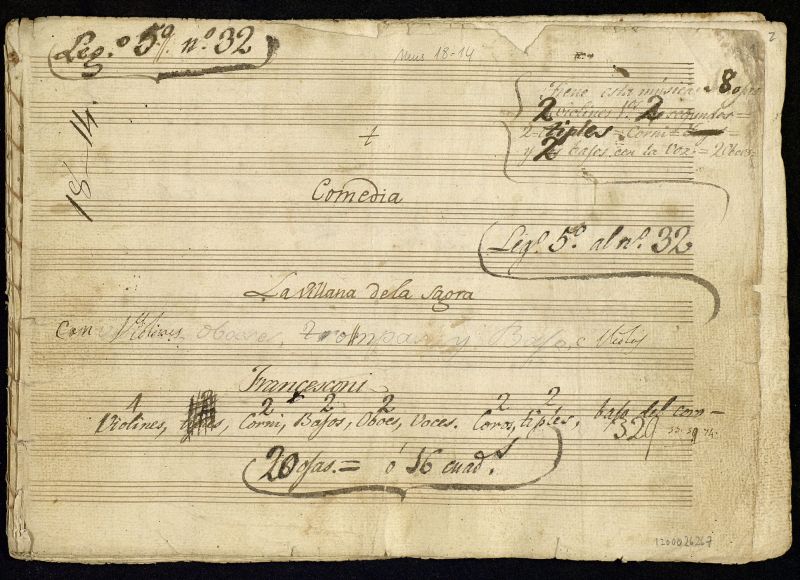 Leg.º 5º. nº. 32
Mus 18-14
2
18-14.
Tiene esta música 8 ojas
2 violines 1º 2 segundos =
2 tiples = Corni =
y 2 bajos con la voz = 2 Oboes
Comedia
Legº. 5º. al nº. 32
La Villana de la Sagra
Con Violines, oboeses, trompas y Bajo, e Violis
Francesconi
4 2 2 2 2 2
Violines, Corni, Bajos, Oboes, Voces. Coros, tiples, bajo del coro-
329
20 ojas. = ó 16 cuad.s
1200026267